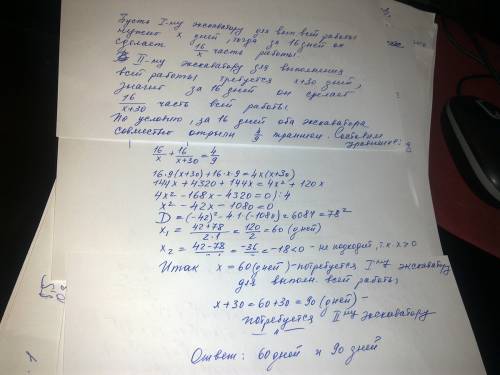 Пусть I-му экскаватору для вып. всей работы
нужно x дней, тогда за 16 дней он
сделает 16/x часть работы.
II-му экскаватору для выполнения
всей работы требуется x+30 дней,
значит за 16 дней он сделает
16/x+30 часть всей работы
По условию, за 16 дней оба экскаватора
совместно отрыли 4/9 траншеи. Составим
уравнение:
16/x + 16/x+30 = 4/9
16·9(x+30)+16·x·9=4x(x+30)
144x+4320+144x=4x²+120x
4x²-168x-4320=0):4
x²-42x-1080=0
D=(-42)²-4·1·(-1080)=6084=78²
x₁=42+78/2·1=120/2=60 (дней)
x₂=42-78/2=-36/2=-18<0 - не подходит, т.к. x>0
Итак x=60(дней)-потребуется I му экскаватору
для выполн. всей работы
x+30=60+30=90 (дней) -
потребуется II му экскаватору
Ответ: 60 дней и 90 дней